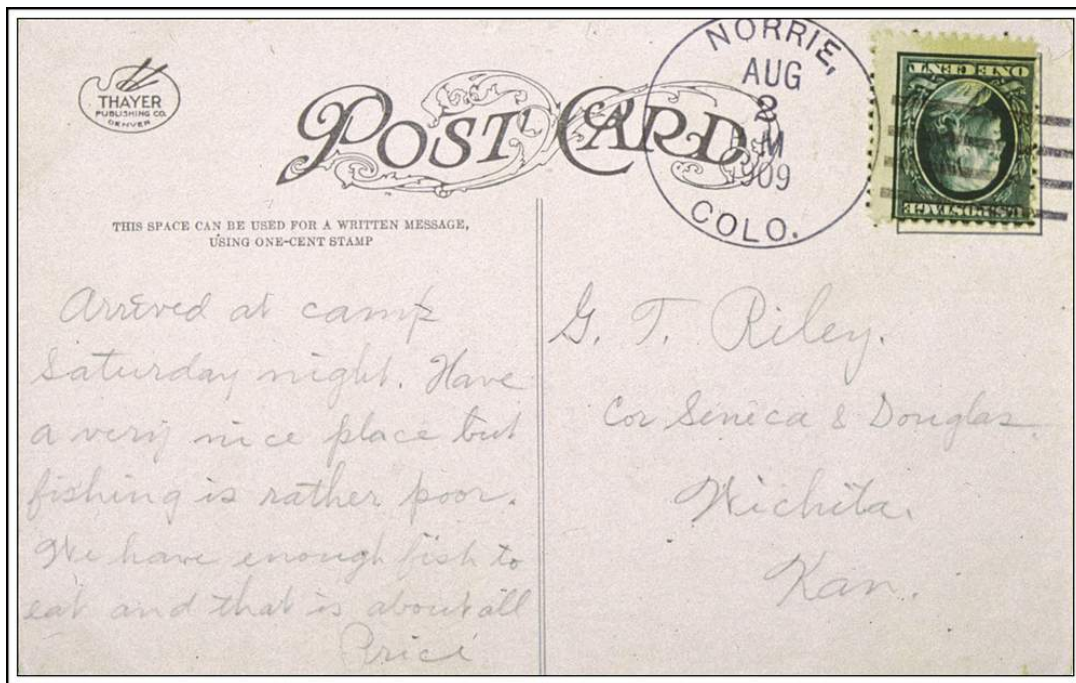 THAYER
PUBLISHING CO.
DENVER
POST CARD
NORRIE,
AUG
2
M
1909
COLO.
ONE CENT
U.S. POSTAGE
THIS SPACE CAN BE USED FOR A WRITTEN MESSAGE,
USING ONE-CENT STAMP
Arrived at camp
Saturday night. Have
a very nice place but
fishing is rather poor.
We have enough fish to
eat and that is about all
Price
G. T. Riley.
Cor Seneca & Douglas.
Wichita.
Kan.